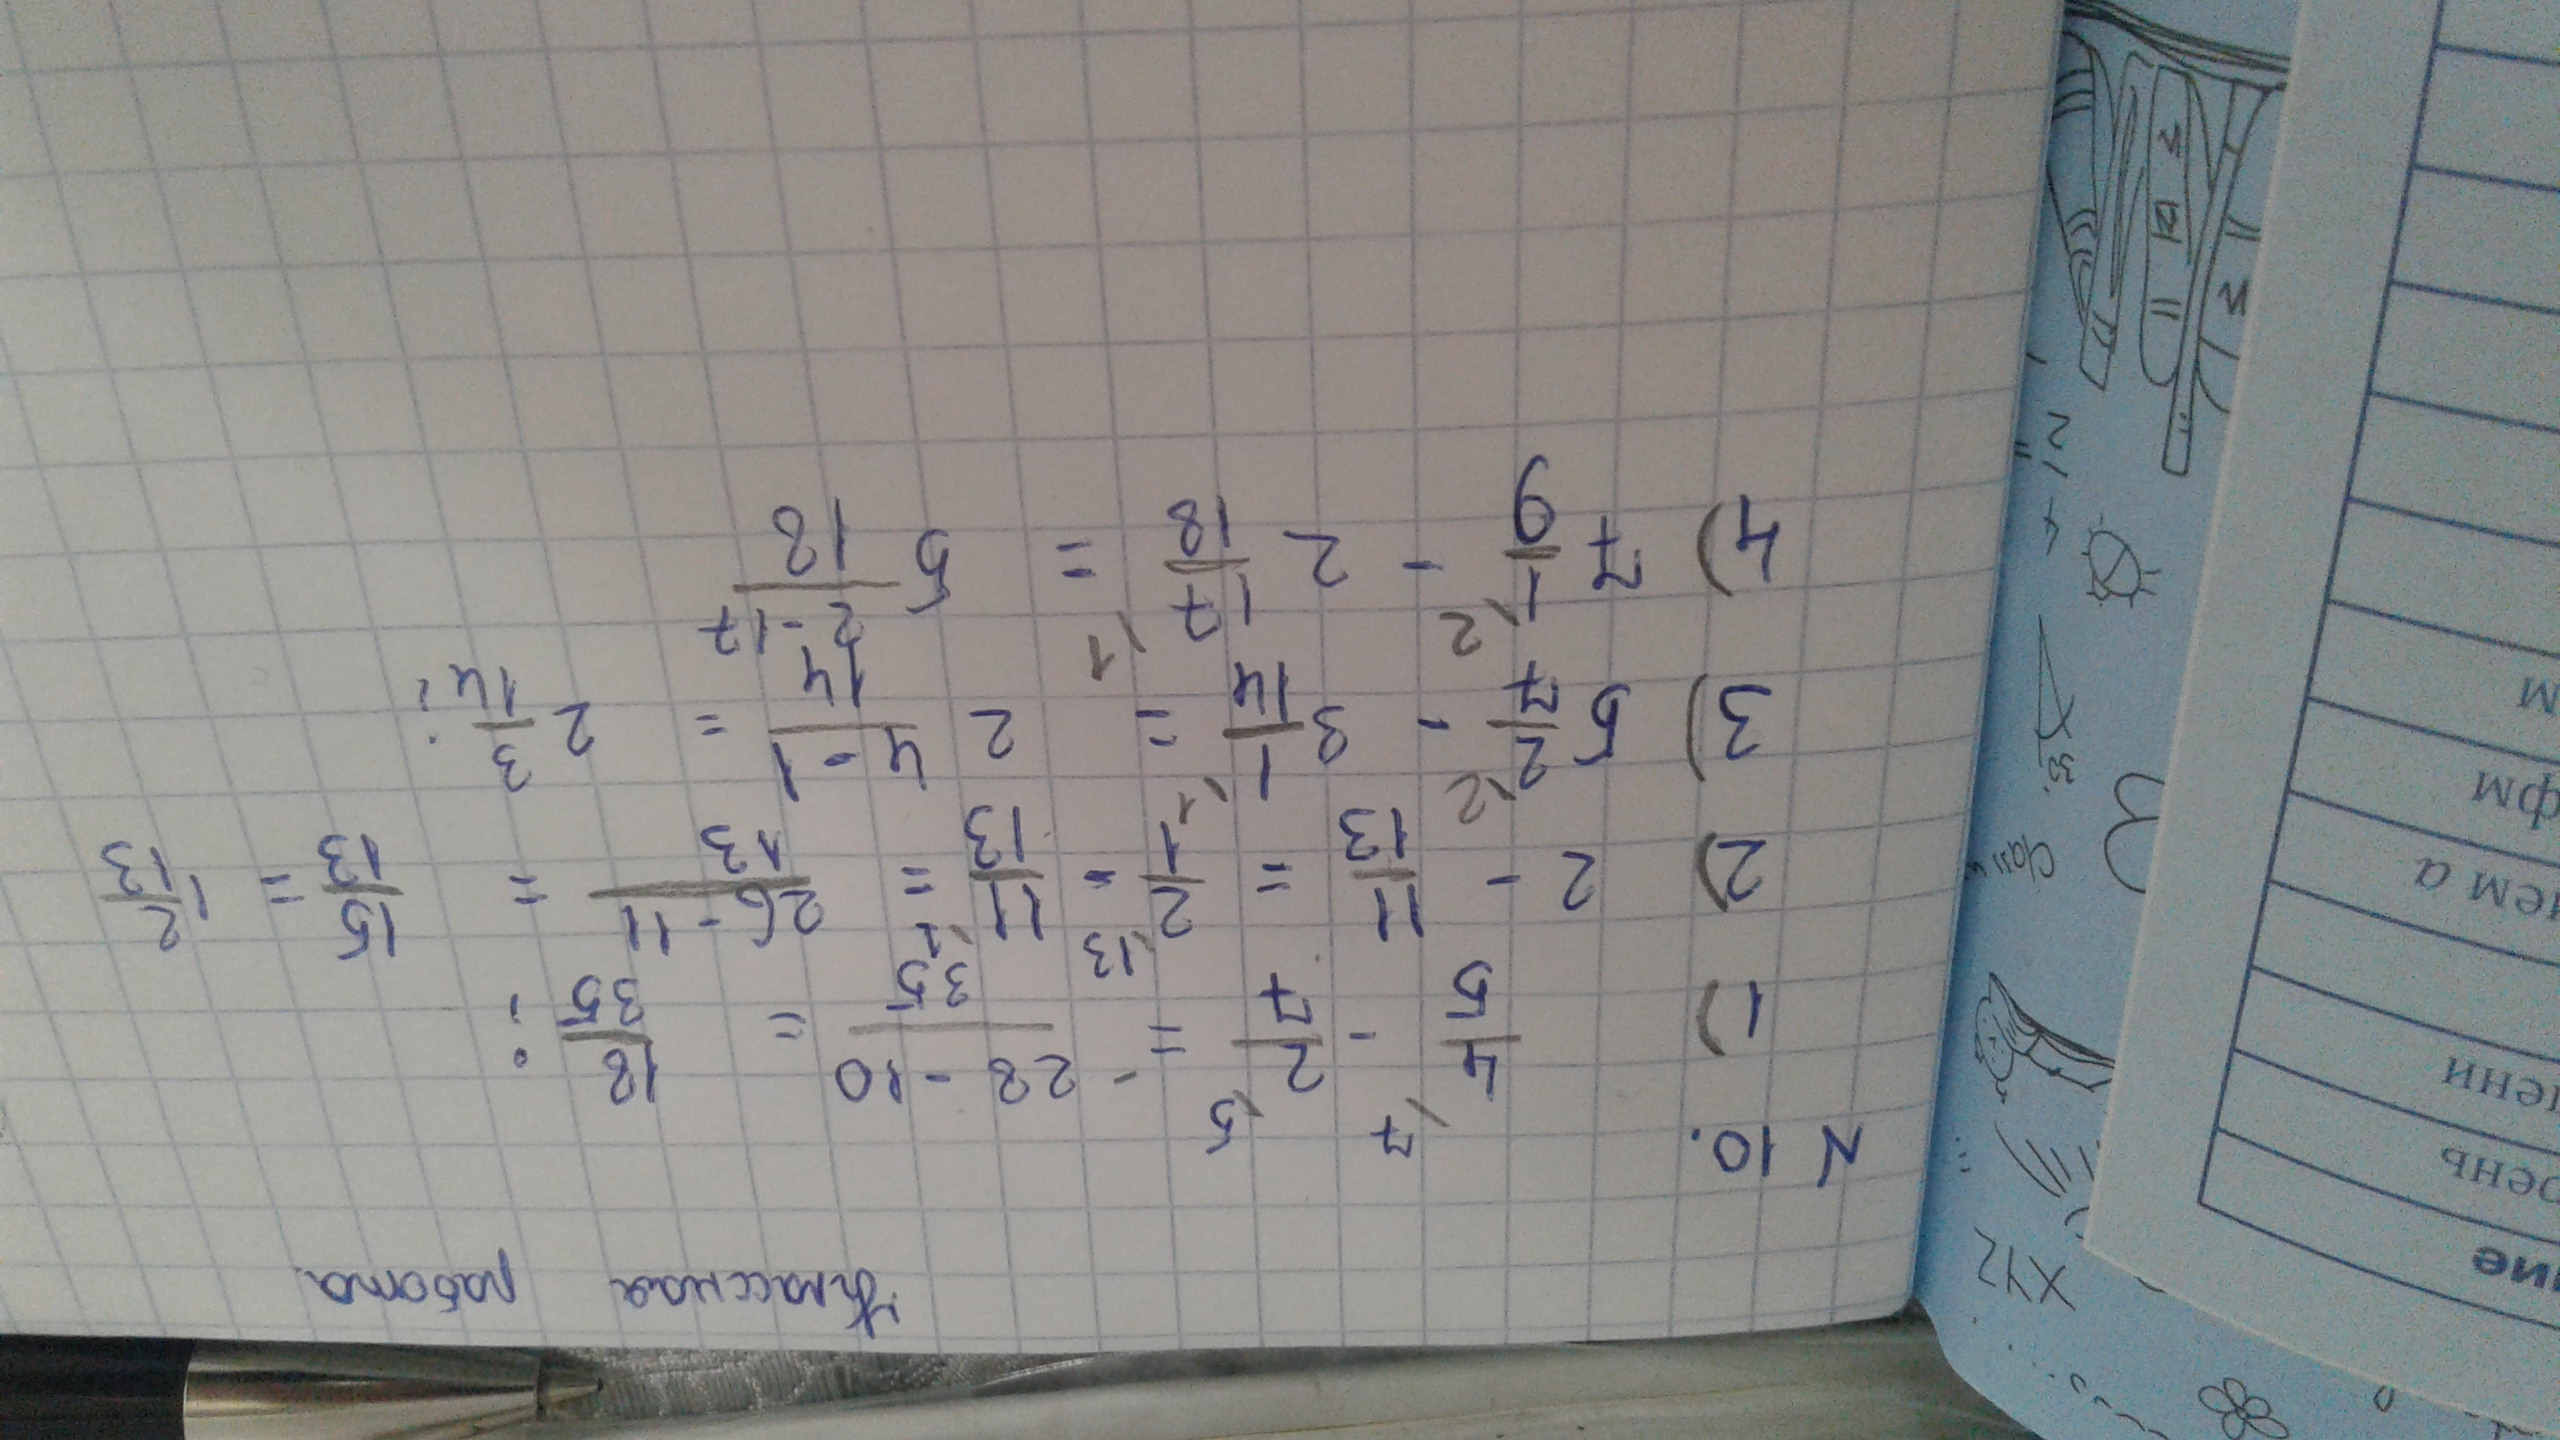 Классная работа
N 10.
1) 4/5 \7 - 2/7 \5 = 28 - 10/35 = 18/35 ;
2) 2 - 11/13 = 2/1 \13 - 11/13 \1 = 26 - 11/13 = 15/13 = 1 2/13
3) 5 2/7 \2 - 3 1/14 \1 = 2 4 - 1/14 = 2 3/14 ;
4) 7 1/9 \2 - 2 17/18 \1 = 5 2 - 17/18
XYZ
ие
рень
ием а
фм
м